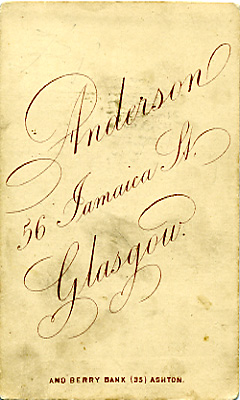 Anderson
56 Jamaica St.
Glasgow.
AND BERRY BANK (35) ASHTON.